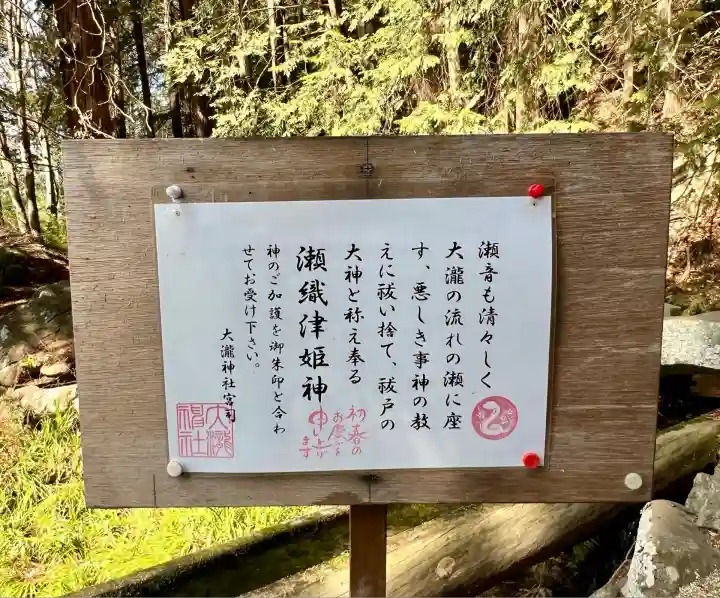 瀬音も清々しく
大瀧の流れの瀬に座
す、悪しき事神の教
えに祓い捨て、祓戸の
大神と称え奉る
瀬織津姫神
神のご加護を御朱印と合わ
せてお受け下さい。
大瀧神社宮司
初春の
お慶びを
申し上げ
ます
大瀧
神社